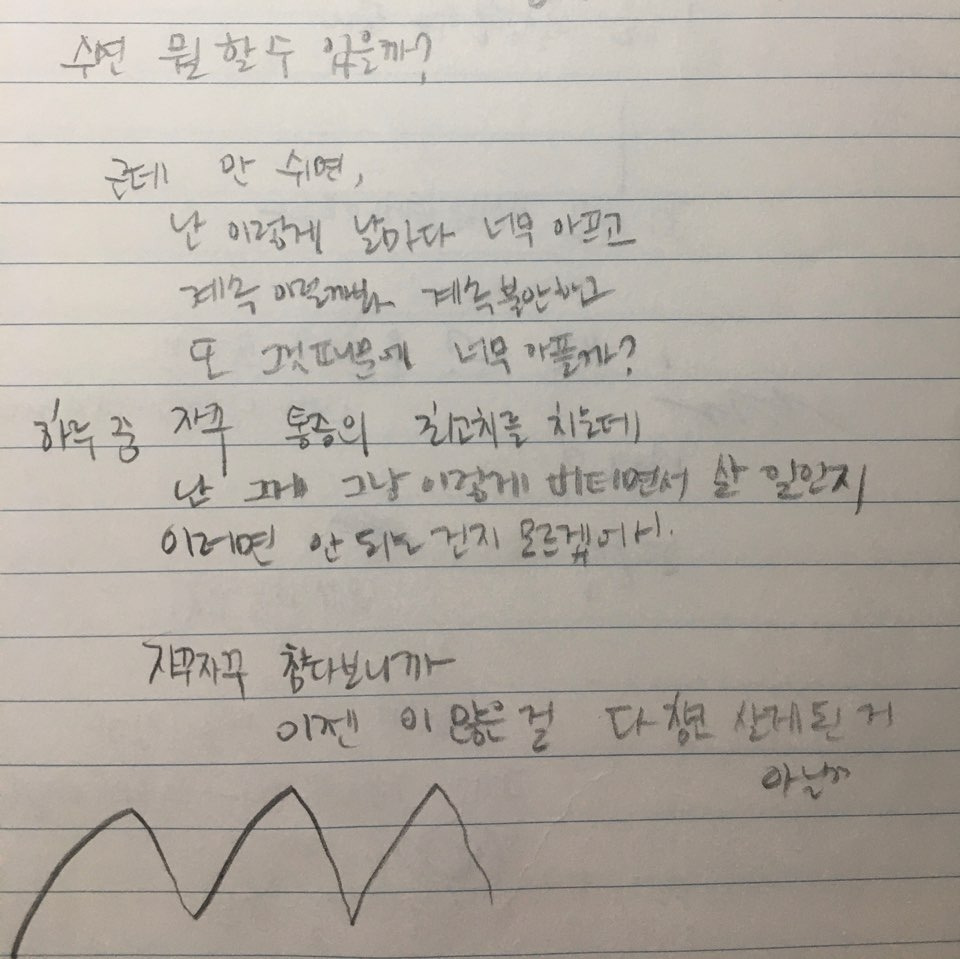 쉬면 뭘 할 수 있을까?
근데 안 쉬면,
난 이렇게 날마다 너무 아프고
계속 이럴까봐 계속 불안하고
또 그것때문에 너무 아플까?
하루 중 자꾸 통증의 최고치를 치는데
난 그게 그냥 이렇게 버티면서 살 일인지
이러면 안 되는 건지 모르겠어.
자꾸자꾸 참다보니까
이젠 이 많은 걸 다 참고 살게된 거
아닐까